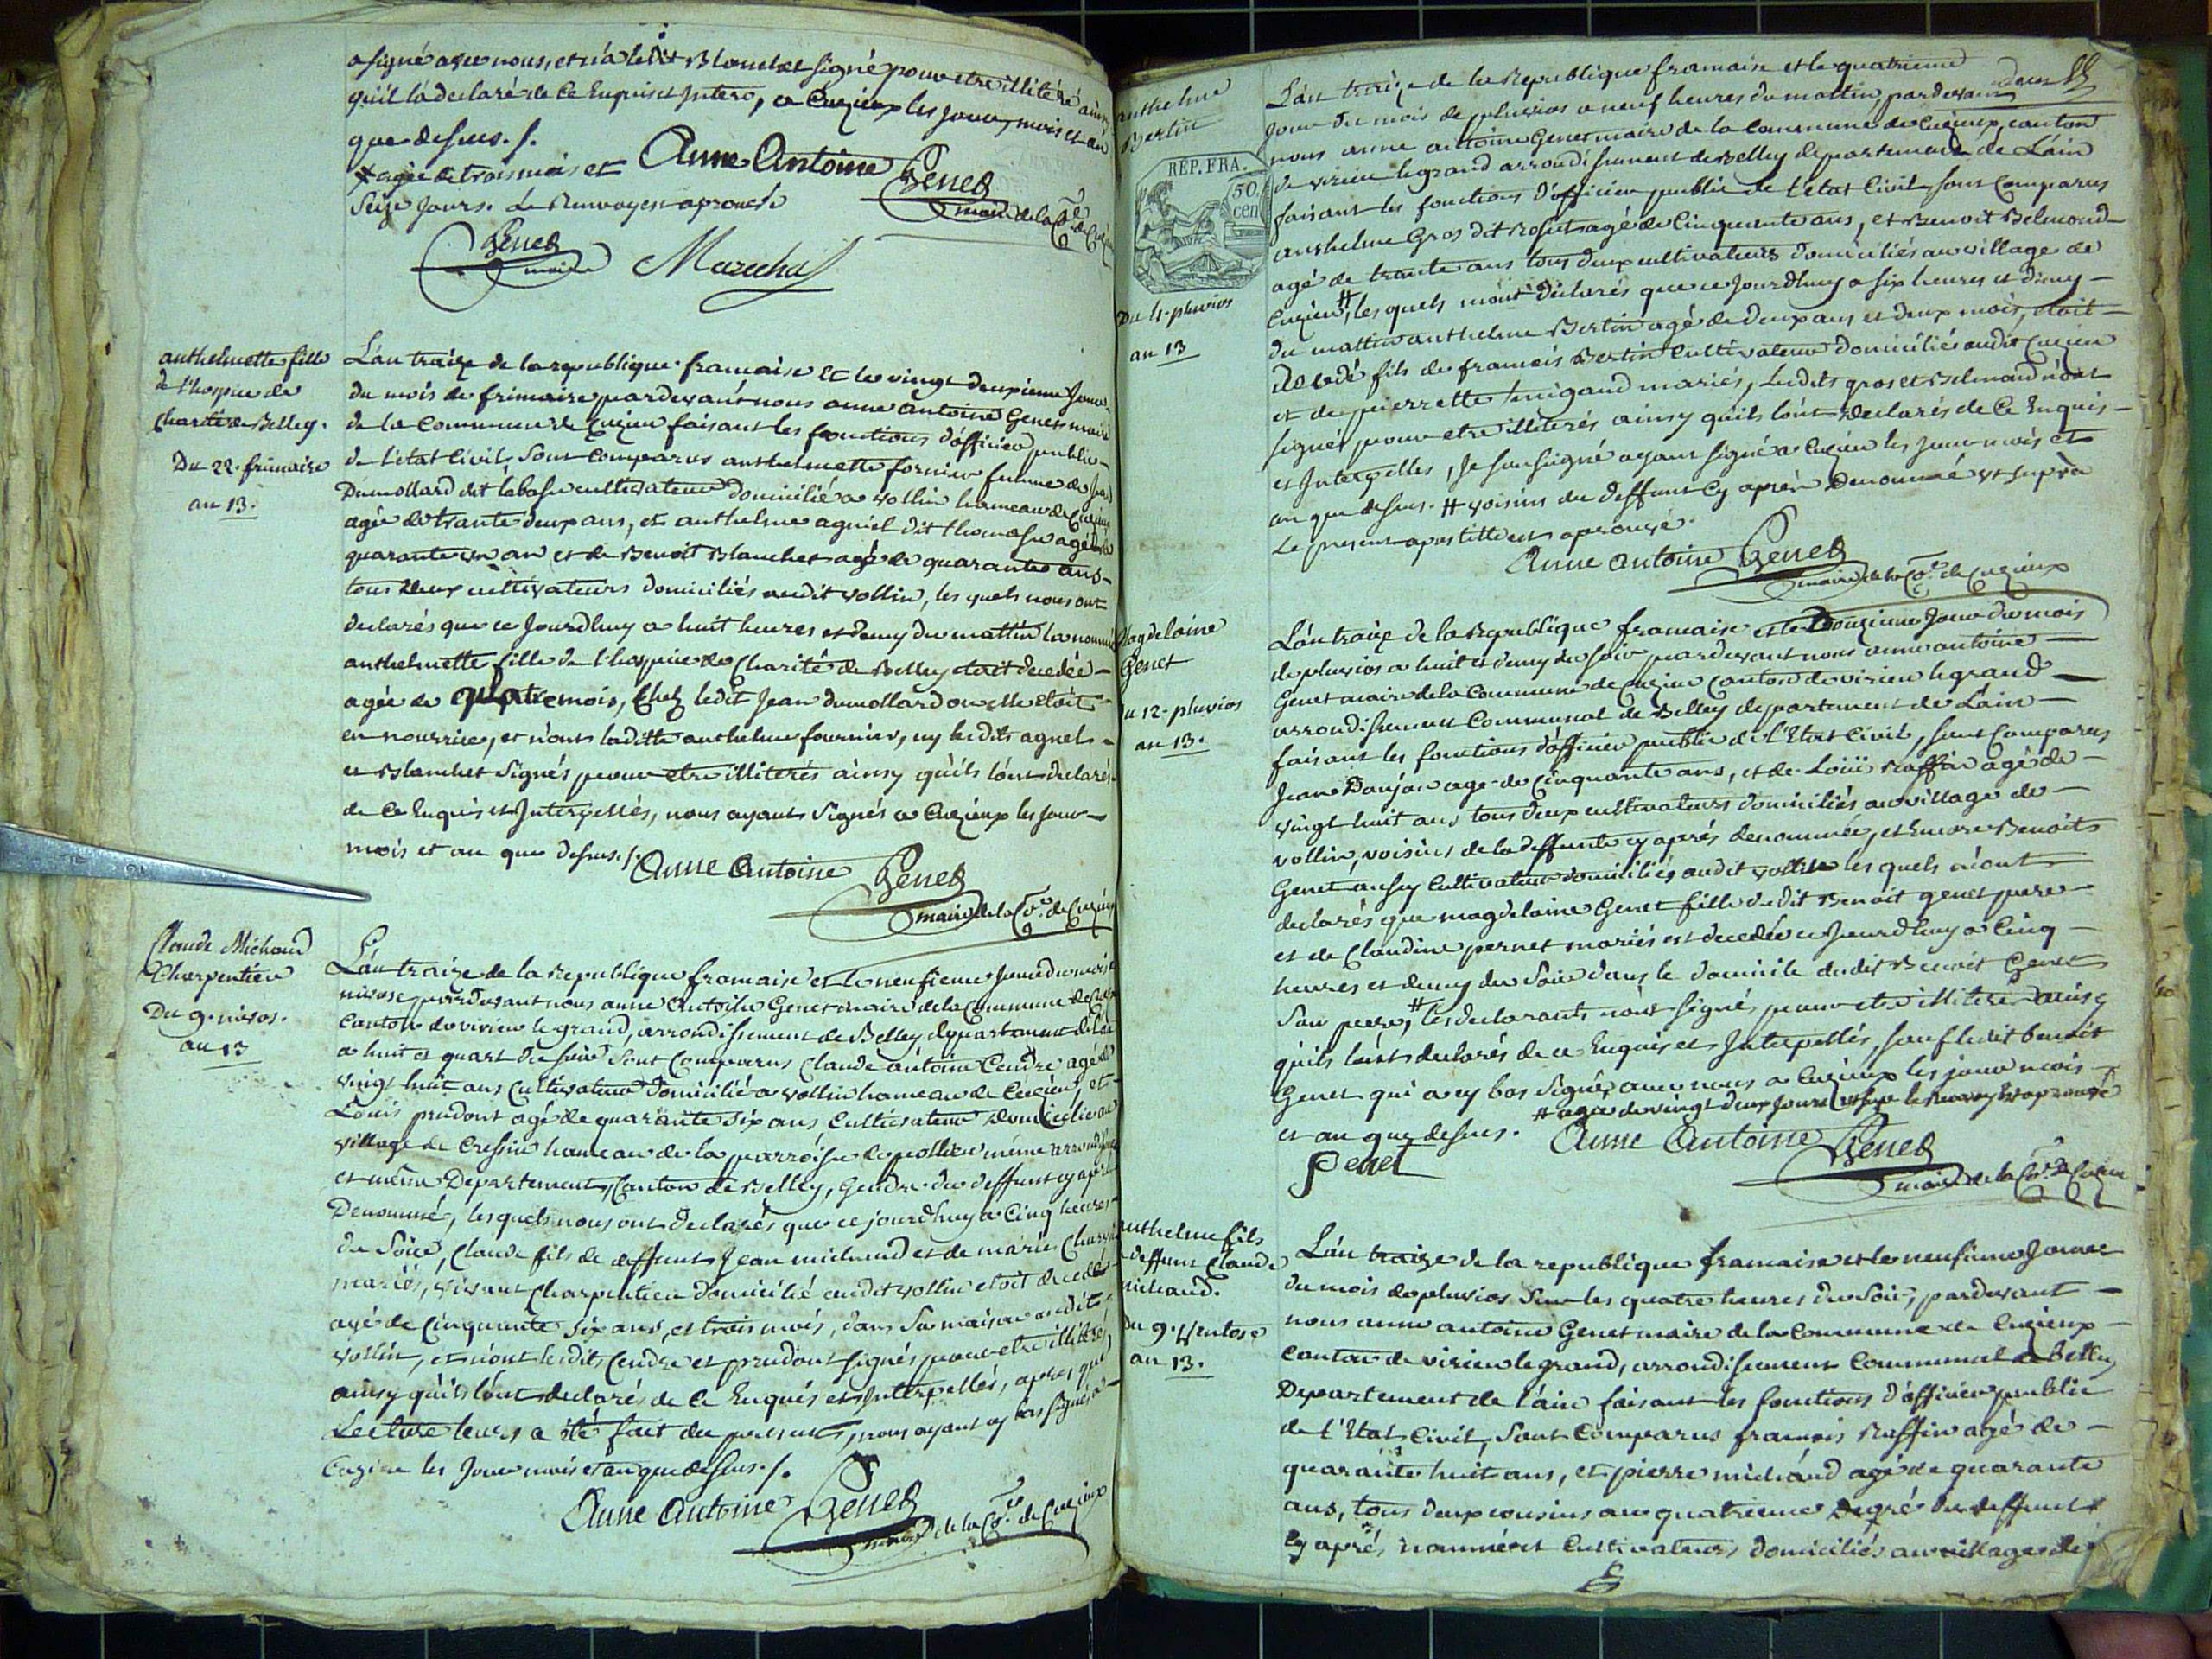 a signé avec nous, et n'a ledit Blanchet signé pour etre illiteré ainsy
qu'il l'a declaré de ce Enquis et Interp, a Cuzieux les jour, mois et an
que dessus ./.
x agée de trois mois et
Seize Jours. Le Renvoy est aprouvé
Anne Antoine Genet
maire de la Cne de Cuzieu
Genet
maire
Marechal
anthelmette fille
de l'hospice de
Charité de Belley.
Du 22. frimaire
an 13.
L'an traize de la republique francaise Et le vingt deuxieme Jour
du mois de frimaire pardevant nous anne antoine Genet maire
de la Commune de Cuzieu faisant les fonctions d'officier public
de l'etat Civil, Sont Comparus anthelmette fornier femme de Jean
Dumollard dit labasse cultivateur domicilié a vollin hameau de Cuzieu
agée de trante deux ans, et anthelme agniel dit thomasse agé de
quarante un an et de Benoit Blanchet agé de quarante ans
tous deux cultivateurs domiciliés audit vollin, les quels nous ont
declarés que ce Jourdhuy a huit heures et demy du mattin la nommé
anthelmette fille de l'hospice de Charité de Belley etait decedée
agée de quatre mois, Chez ledit Jean dumollard ou elle etoit
en nourrice, et n'ont laditte anthelme fournier, ny lesdits agnel
et Blanchet Signés pour etre illiterés ainsy qu'ils l'ont declarés
de ce Enquis et Interpellés, nous ayant Signés a Cuzieux les jour
mois et an que dessus ./.
Anne Antoine Genet
maire de la Cne de Cuzieu
Claude Michaud
Charpentier
Du 9. nivos.
an 13
L'an traize de la Republique francaise et le neufieme jour du mois
nivose pardevant nous anne Antoine Genet maire de la Commune de Cuzieu
Canton de virieu le grand, arrondissement de Belley departement de l'ain
a huit et quart du soir Sont Comparus Claude antoine Cendre agé de
vingt huit ans Cultivateur domicilié a vollin hameau de Cuzieu, et
Louis prudont agé de quarante six ans Cultivateur domicilié au
village de Cressin hameau de la parroisse de pollieu même arrondisse
et même Departement, Canton de Belley, Gendre du deffunt cy après
Denommé, lesquels nous ont declarés que ce jourdhuy a Cinq heures
du Soire, Claude fils de deffunt Jean michaud et de marie
mariés, vivant Charpentier domicilié audit vollin etoit decedé
agé de Cinquante six ans, et trois mois, dans Sa maison audit
vollin, et n'ont lesdits Cendre et prudont signés pour etre illiteré
ainsy qu'ils l'ont declarés de ce Enqués et Interpellés, apres que
Lecture leurs a été fait du present, nous ayant cy bas signés a
Cuzieu les Jour mois et an que dessus ./.
Anne Antoine Genet
maire de la Cne de Cuzieux
anthelme
Bertin
REP. FRA.
50
cen
Du 4. pluvios
an 13
L'an traize de la Republique francaise et le quatrieme
Jour du mois de pluvios a neuf heures du mattin, pardevant
nous anne antoine Genet maire de la Commune de Cuzieux canton
de virieu le grand arrondissement de Belley departement de L'ain
faisant les fonctions d'officier public de l'etat Civil, sont Comparus
anthelme Gros dit Rosset agé de Cinquante ans, et Benoit Belmond
agé de trante ans tous deux cultivateurs domiciliés au village de
Cuzieu, # les quels m'ont declarés que ce Jourdhuy a six heures et demy
du mattin anthelme Bertin agé de deux ans et deux mois, etoit
decedé fils de francois Bertin Cultivateur domiciliés audit Cuzieu
et de pierrette mariés, Lesdits gros et Belmond n'ont
signés pour etre illiterés ainsy qu'ils l'ont declarés de Ce Enquis
et Interpellés, Je soussigné ayant signé a Cuzieu les jour mois et
an que dessus. # voisins du deffunt Cy après Denommé et suprà
Le present apostille est aprouvé.
Anne Antoine Genet
maire de la Cne de Cuzieux
Magdelaine
Genet
du 12. pluvios
an 13.
L'an traize de la Republique francaise et le Douzieme Jour du mois
de pluvios a huit et demy du soir pardevant nous anne antoine
Genet maire de la Commune de Cuzieu Canton de virieu le grand
arrondissement Communal de Belley departement de L'ain
faisant les fonctions d'officier public de l'Etat Civil, sont Comparus
Jean agé de Cinquante ans, et de Loüis Raffin agé de
vingt huit ans tous deux cultivateurs domiciliés au village de
vollin, voisins de la deffunte cy aprés denommée, et Encore Benoit
Genet aussy Cultivateur domiciliés audit vollin les quels m'ont
declarés que magdelaine Genet fille dudit Benoit genet pere
et de Claudine pernet mariés est decedée ce Jourdhuy a Cinq
heures et demy du Soir dans le domicile dudit Benoit Genet
Son pere, # les declarants n'ont signé, pour etre illiteré ainsy
qu'ils l'ont declarés de ce Enquis et Interpellés, sauf ledit benoit
Genet qui a cy bas Signé, avec nous a Cuzieux les jour mois
et an que dessus. # agée de vingt deux jours le Renvoy est aprouvé
Genet
Anne Antoine Genet
maire de la Cne de Cuzieu
anthelme fils
deffunt Claude
michaud.
Du 9. Ventose
an 13.
L'an traize de la republique francaise et le neufieme Jour
du mois de pluvios Sur les quatre heures du Soir, pardevant
nous anne antoine Genet maire de la Commune de Cuzieux
Canton de virieu le grand, arrondissement Communal de Belley
Departement de l'ain faisant les fonctions d'officier public
de l'Etat Civil, Sont Comparus francois Raffin agé de
quarante huit ans, et pierre michaud agé de quarante
ans, tous deux cousins au quatrieme Degré du deffunt
Cy aprés nommé et Cultivateurs domiciliés au village de